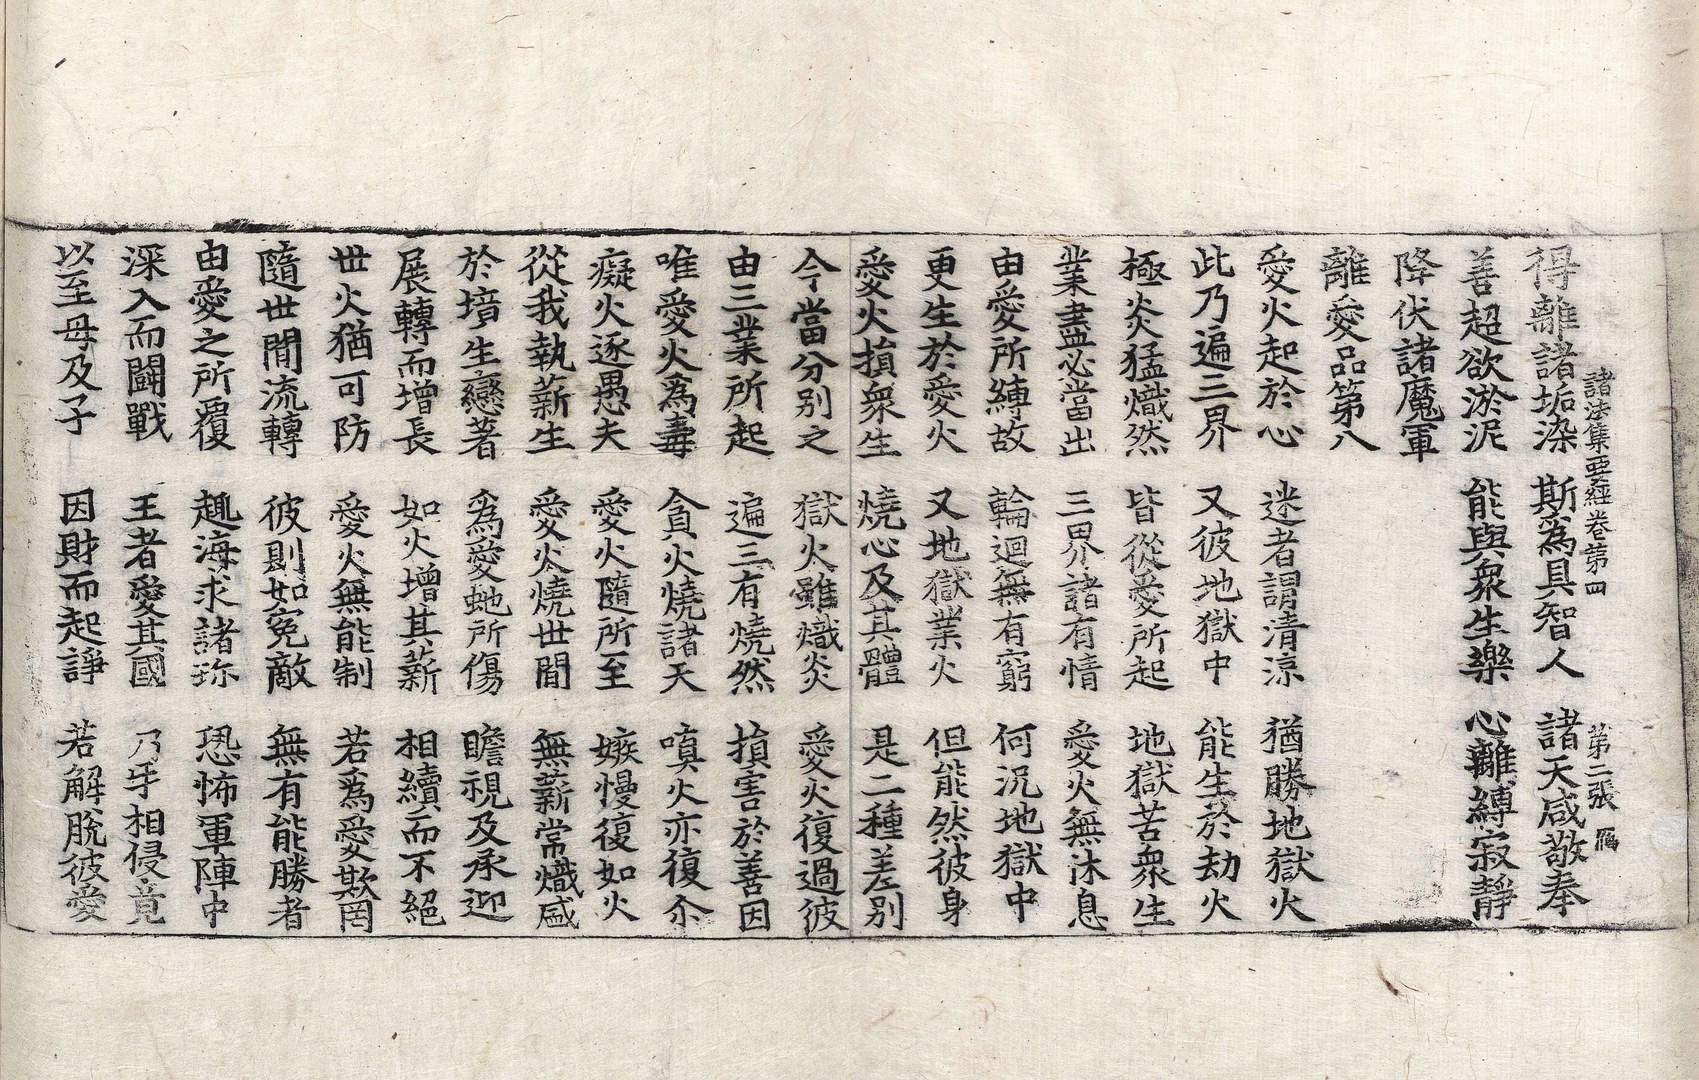 得離諸垢染 斯為具智人 諸天咸敬奉
諸法集要經卷第四 第二張 鴈
善超欲淤泥 能與衆生樂 心離縛寂靜
降伏諸魔軍
離愛品第八
愛火起於心 迷者謂清涼 猶勝地獄火
此乃遍三界 又彼地獄中 能生於劫火
極炎猛熾然 皆從愛所起 地獄苦衆生
業盡必當出 三界諸有情 愛火無沐息
由愛所縛故 輪迴無有窮 何況地獄中
更生於愛火 又地獄業火 但能然彼身
愛火損衆生 燒心及其體 是二種差別
今當分別之 獄火雖熾炎 愛火復過彼
由三業所起 遍三有燒然 損害於善因
唯愛火為毒 貪火燒諸天 嗔火亦復尒
癡火逐愚夫 愛火隨所至 嫉慢復如火
從我執薪生 愛火燒世間 無薪常熾盛
於境生戀著 為愛虵所傷 瞻視及承迎
展轉而增長 如火增其薪 相續而不絕
世火猶可防 愛火無能制 若為愛欺罔
隨世間流轉 彼則如冤敵 無有能勝者
由愛之所覆 趣海求諸珎 恐怖軍陣中
深入而鬪戰 王者愛其國 乃乎相侵竟
以至母及子 因財而起諍 若解脫彼愛